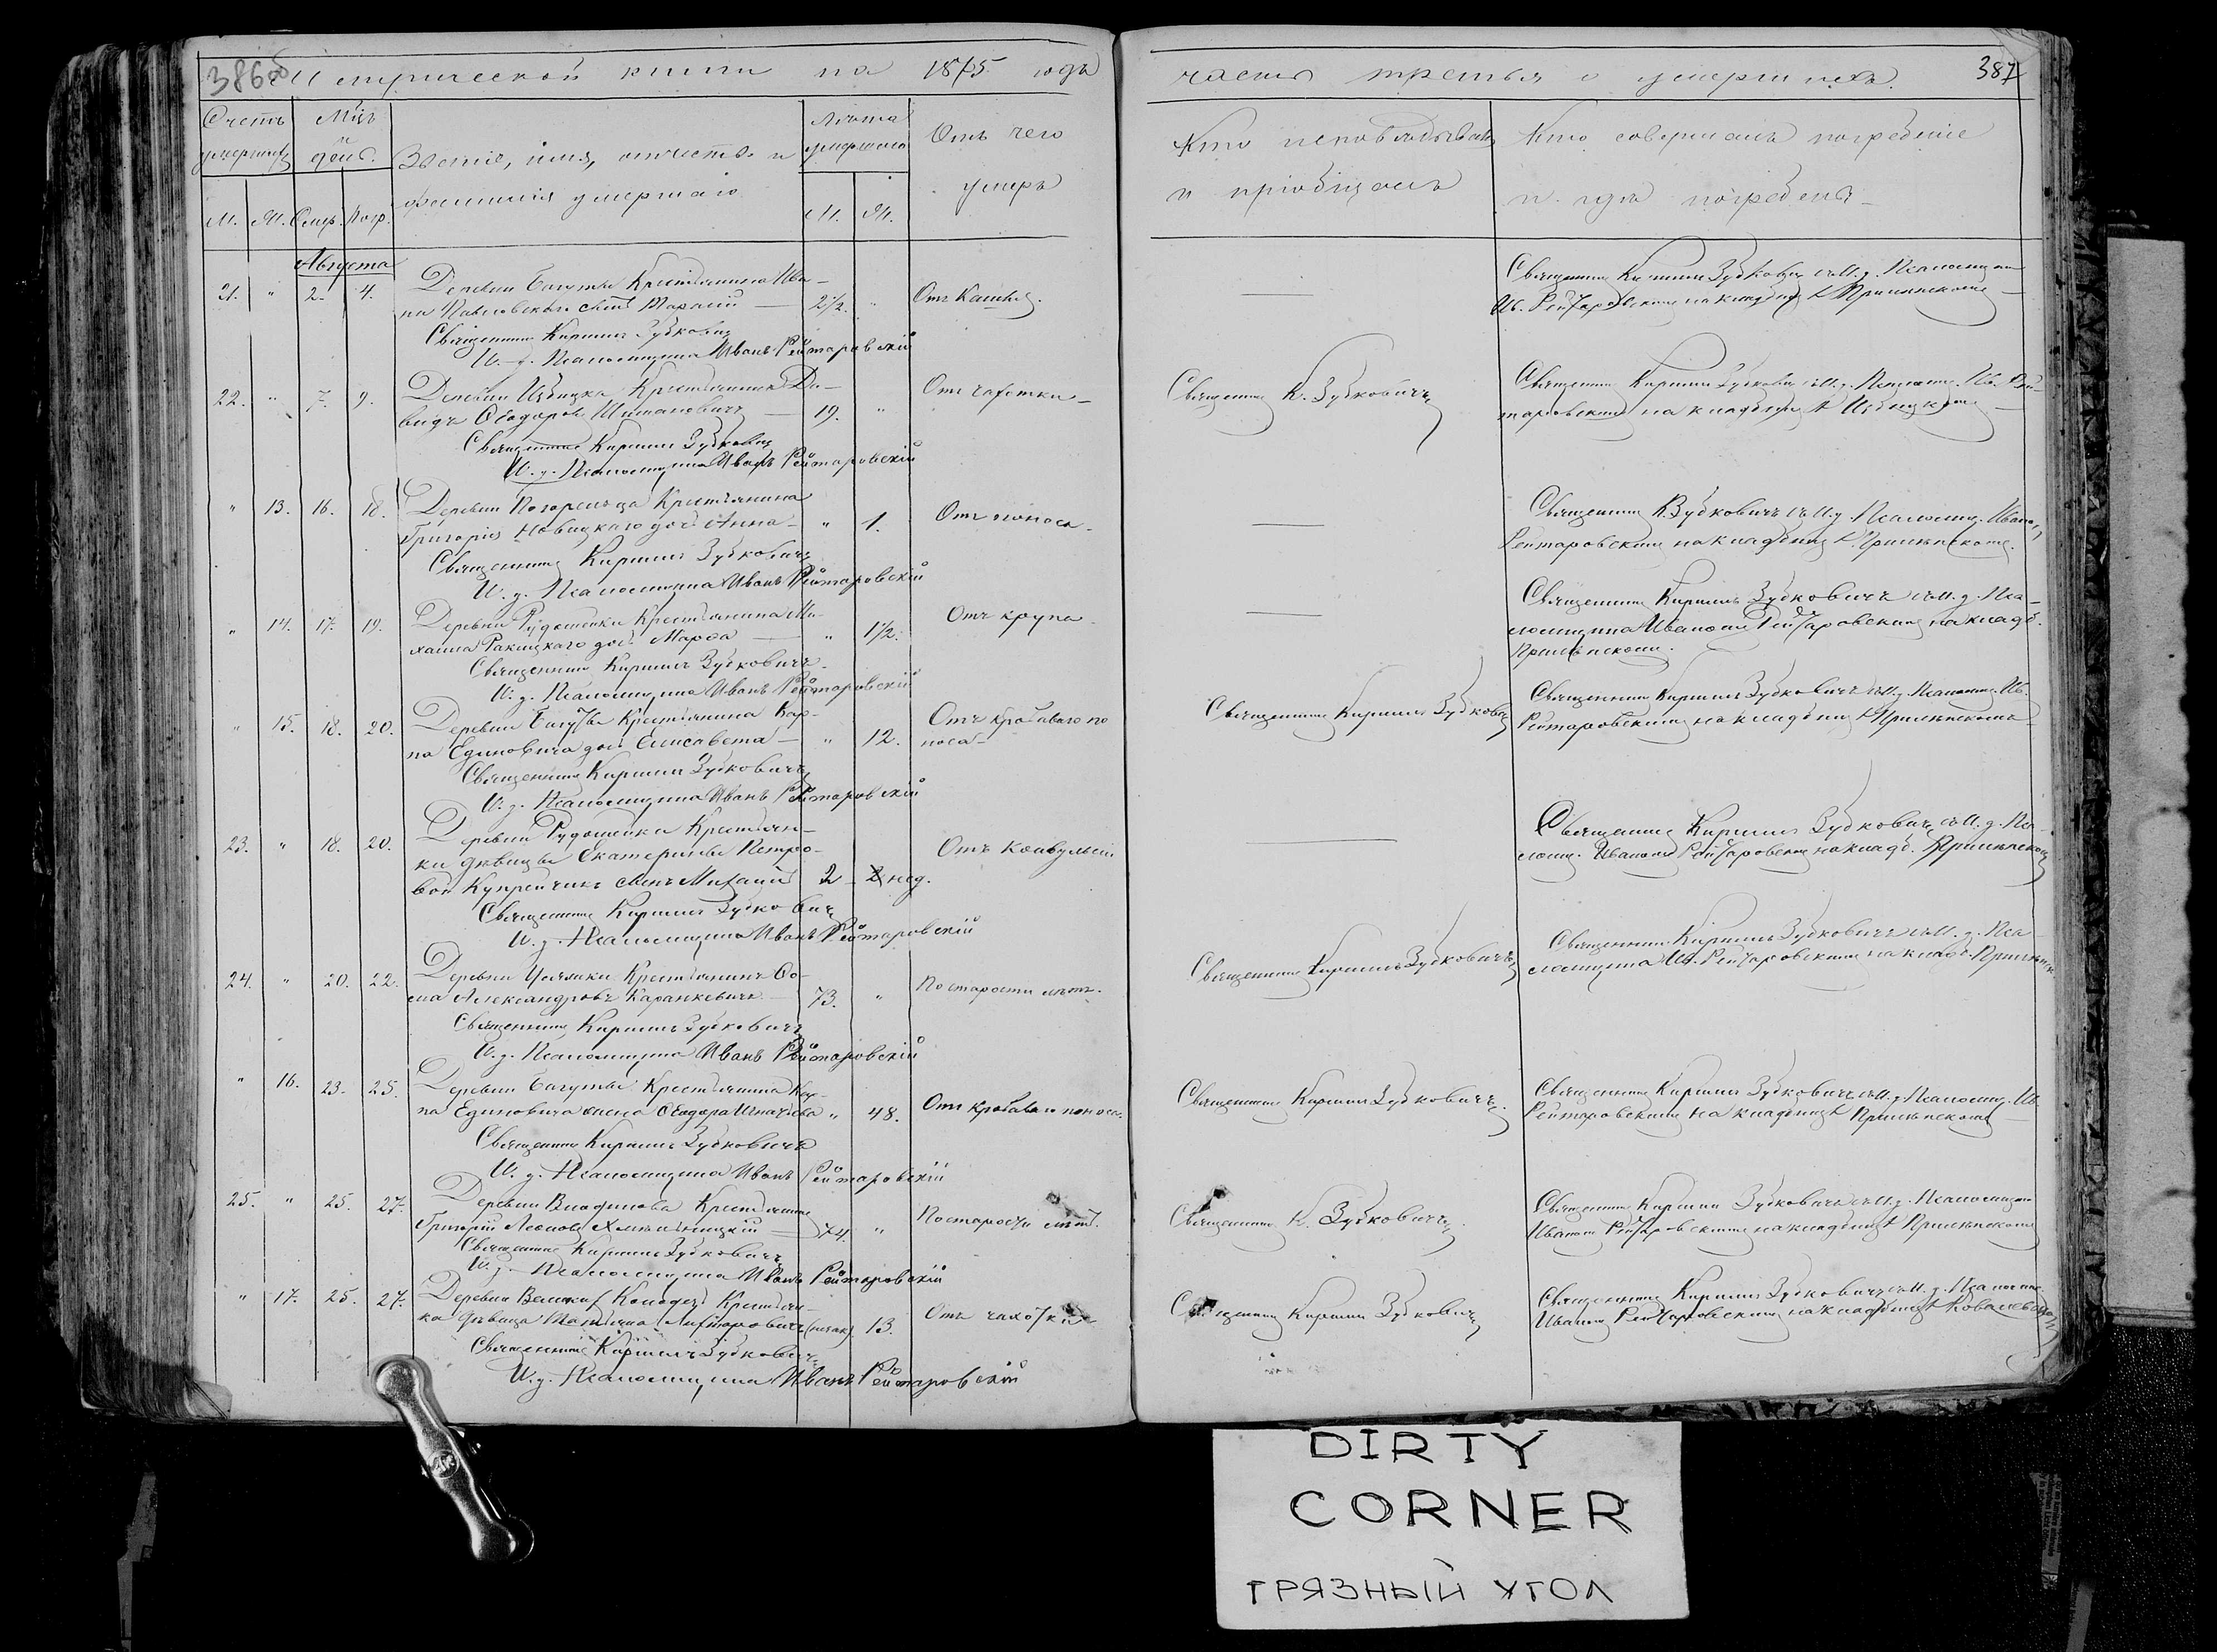 386об Метрической книги на 1875 годъ
Счетъ умершихъ
Мцъ и день.
Званіе, имя, отчество и фамилія умершаго
Лѣта умершаго
Отъ чего умеръ
М. Ж. Смер. Погр. М. Ж.
Августа
21. " 2. 4. Деревни Багуты Крестьянина Ива-
на Павловскаго сынъ 2½. " Отъ Кашля.
Священникъ Кириллъ Зубковичъ
И. д. Псаломщика Иванъ Рейтаровскій
22. " 7. 9. Деревни Избицка Крестьянинъ Да-
видъ Ѳеодоровъ Шимановичъ 19. " Отъ чахотки
Священникъ Кириллъ Зубковичъ
И. д. Псаломщика Иванъ Рейтаровскій
" 13. 16. 18. Деревни Погорельца Крестьянина
Григорія Новицкаго дочь Анна " 1. Отъ поноса
Священникъ Кириллъ Зубковичъ
И. д. Псаломщика Иванъ Рейтаровскій
" 14. 17. 19. Деревни Рудошейки Крестьянина Ми-
хаила Ракицкаго дочь " 1½. Отъ крупа
Священникъ Кириллъ Зубковичъ
И. д. Псаломщика Иванъ Рейтаровскій
" 15. 18. 20. Деревни Багуты Крестьянина Кар-
па Единовича дочь Елисавета " 12. Отъ кроваваго по
носа
Священникъ Кириллъ Зубковичъ
И. д. Псаломщика Иванъ Рейтаровскій
23. " 18. 20. Деревни Рудошейки Крестьян-
ки дѣвицы Екатерины Петро-
вой Купрейчикъ сынъ Михаилъ 2 нед. Отъ Конвульсій
Священникъ Кириллъ Зубковичъ
И. д. Псаломщика Иванъ Рейтаровскій
24. " 20. 22. Деревни Крестьянинъ Ѳо-
ма Александровъ Каранкевичъ 73. " По старости лѣтъ.
Священникъ Кириллъ Зубковичъ
И. д. Псаломщика Иванъ Рейтаровскій
" 16. 23. 25. Деревни Багуты Крестьянина Кар-
па Единовича жена Ѳеодора Игнатьева " 48. Отъ кроваваго поноса
Священникъ Кириллъ Зубковичъ
И. д. Псаломщика Иванъ Рейтаровскій
25. " 25. 27. Деревни Крестьянинъ
Григорій Леоновъ Хмельницкій 74. " По старости лѣтъ.
Священникъ Кириллъ Зубковичъ
И. д. Псаломщика Иванъ Рейтаровскій
" 17. 25. 27. Деревни Крестьян-
ка дѣвица 13. Отъ чахотки
Священникъ Кириллъ Зубковичъ
И. д. Псаломщика Иванъ Рейтаровскій
часть третья о умершихъ. 387
Кто исповѣдывалъ и пріобщалъ
Кто совершалъ погребеніе и гдѣ погребены
Священникъ Кириллъ Зубковичъ съ И. д. Псаломщика
Ив. Рейтаровскимъ на кладбищѣ
Священникъ К. Зубковичъ
Священникъ Кириллъ Зубковичъ съ И. д. Псаломщ. Ив. Рей-
таровскимъ на кладбищѣ Избицкомъ
Священникъ К. Зубковичъ съ И. д. Псаломщ. Иваномъ
Рейтаровскимъ на кладбищѣ
Священникъ Кириллъ Зубковичъ съ И. д. Пса-
ломщика Иваномъ Рейтаровскимъ на кладб.
Священникъ Кириллъ Зубковичъ
Священникъ Кириллъ Зубковичъ съ И. д. Псаломщ. Ив.
Рейтаровскимъ на кладбищѣ
Священникъ Кириллъ Зубковичъ съ И. д. Пса-
ломщ. Иваномъ Рейтаровскимъ на кладб.
Священникъ Кириллъ Зубковичъ
Священникъ Кириллъ Зубковичъ съ И. д. Пса-
ломщика Ив. Рейтаровскимъ на кладб.
Священникъ Кириллъ Зубковичъ
Священникъ Кириллъ Зубковичъ съ И. д. Псаломщ. Ив.
Рейтаровскимъ на кладбищѣ
Священникъ К. Зубковичъ
Священникъ Кириллъ Зубковичъ съ И. д. Псаломщика
Иваномъ Рейтаровскимъ на кладбищѣ
Священникъ Кириллъ Зубковичъ
Священникъ Кириллъ Зубковичъ съ И. д. Псаломщика
Иваномъ Рейтаровскимъ на кладбищѣ
DIRTY
CORNER
ГРЯЗНЫЙ УГОЛ